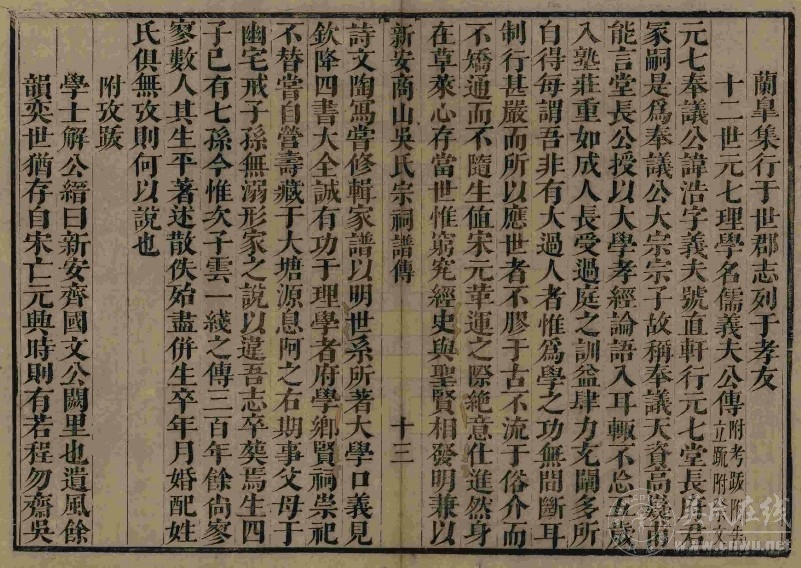 蘭臯集行于世郡志列于孝友
十二世元七理學名儒義夫公傳附考跋附
立䟽附祭文
元七奉議公諱浩字義夫號直軒行元七堂長府君
冢嗣是爲奉議公大宗宗子故稱奉議天資高嶷甫
能言堂長公授以大學孝經論語入耳輒不忘五歲
入塾莊重如成人長受過庭之訓益肆力充闡多所
自得每謂吾非有大過人者惟爲學之功無間斷耳
制行甚嚴而所以應世者不膠于古不流于俗介而
不矯通而不隨生値宋元革運之際絶意仕進然身
在草萊心存當世惟窮究經史與聖賢相發明兼以
新安商山吳氏宗祠譜傳
十三
詩文陶寫嘗修輯家譜以明世系所著大學口義見
欽降四書大全誠有功于理學者府學鄉賢祠崇祀
不替嘗自營壽藏于大塘源息阿之右期事父母于
幽宅戒子孫無溺形家之說以違吾志卒葬焉生四
子已有七孫今惟次子雲一綫之傳三百年餘尙寥
寥數人其生平著述散佚殆盡併生卒年月婚配姓
氏俱無攷則何以說也
附攷跋
學士解公縉曰新安齊國文公闕里也遺風餘
韻奕世猶存自宋亡元興時則有若程勿齋吳
www.cnwu.net